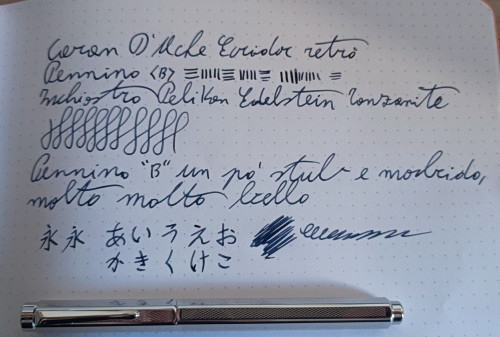 Caran D'Ache Ecridor retrò
Pennino <B>
Inchiostro Pelikan Edelstein Tanzanite
Pennino "B" un pò stub e morbido,
molto molto bello
永 永 あ い う え お
か き く け こ